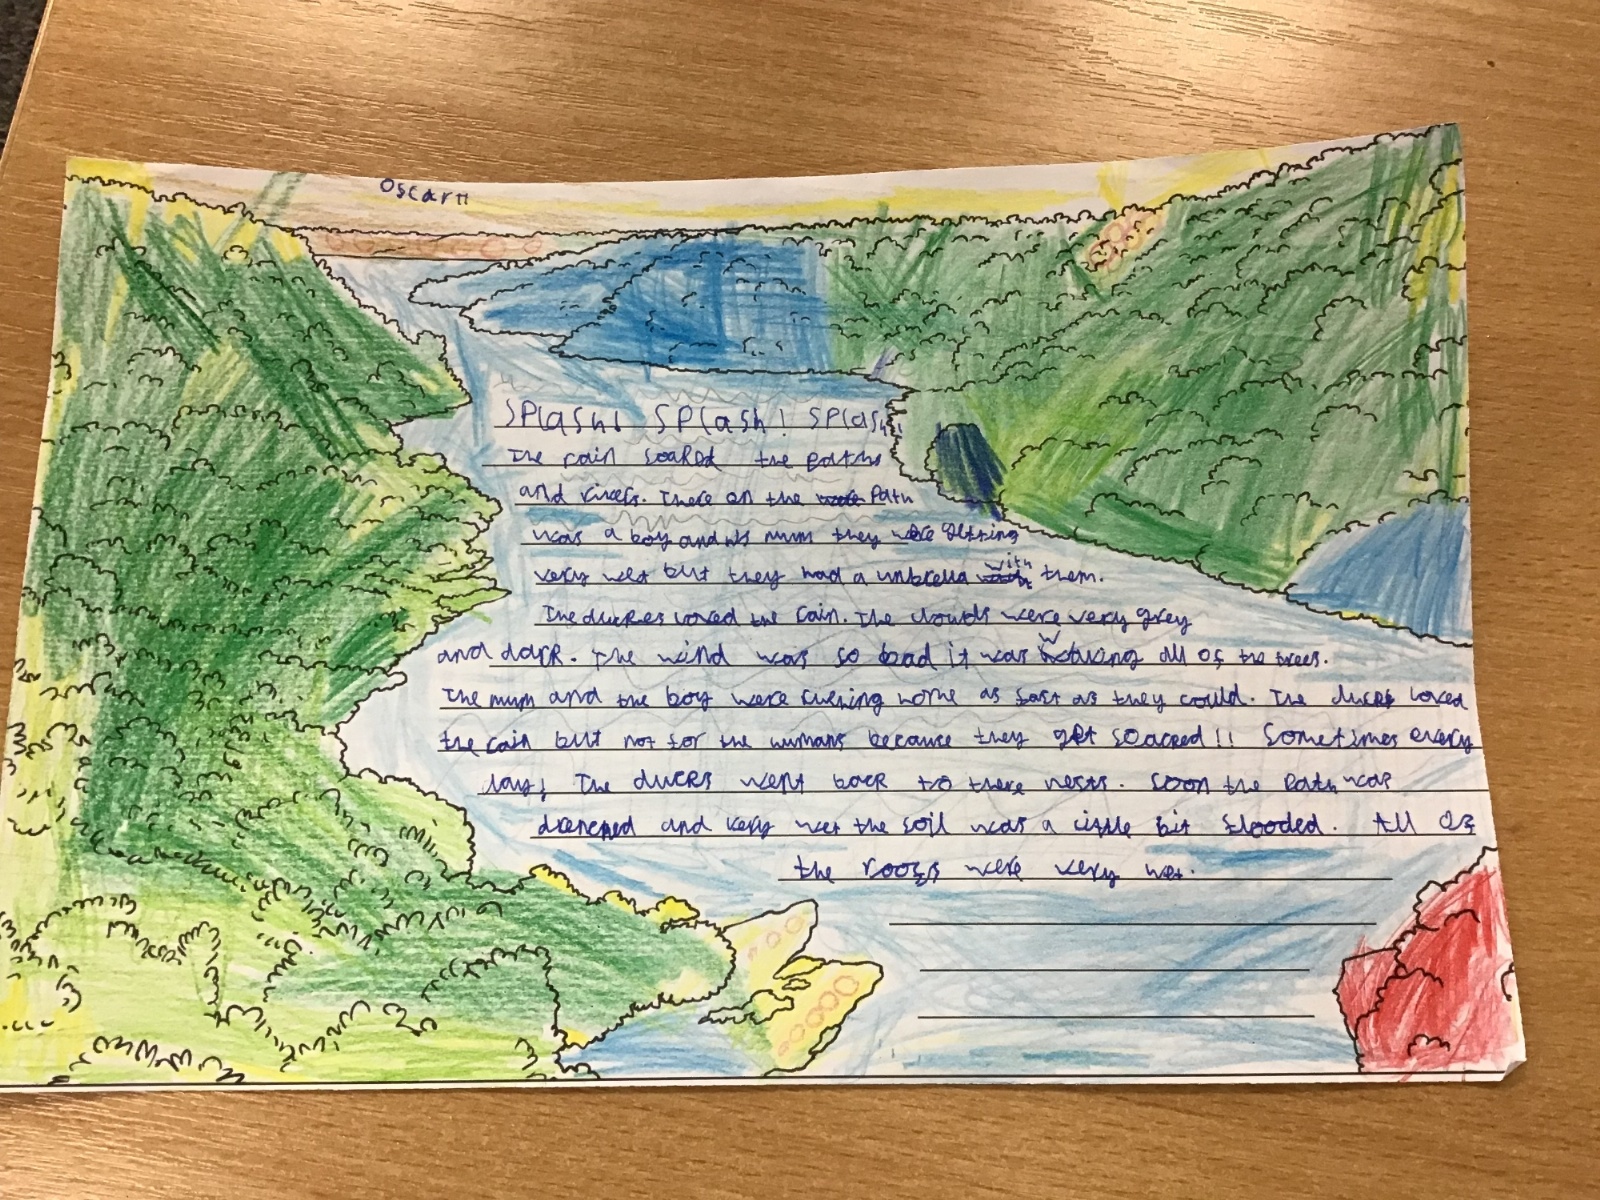 Oscar H
SPlash! SPlash! SPlash
The rain soaked the paths
and rivers. There on the Path
was a boy and his mum they were getting
very wet but they had a unbrella with them.
The duckes loved the rain. The clouds were very grey
and dark. The wind was so bad it was waving all of the trees.
The mum and the boy were runing home as fast as they could. The ducks loved
the rain but not for the humans because they get soacked!! Sometimes every
day! The ducks went back to there nests. Soon the Path was
drenched and very wet the soil was a little bit flooded. All of
the roofs were very wet.